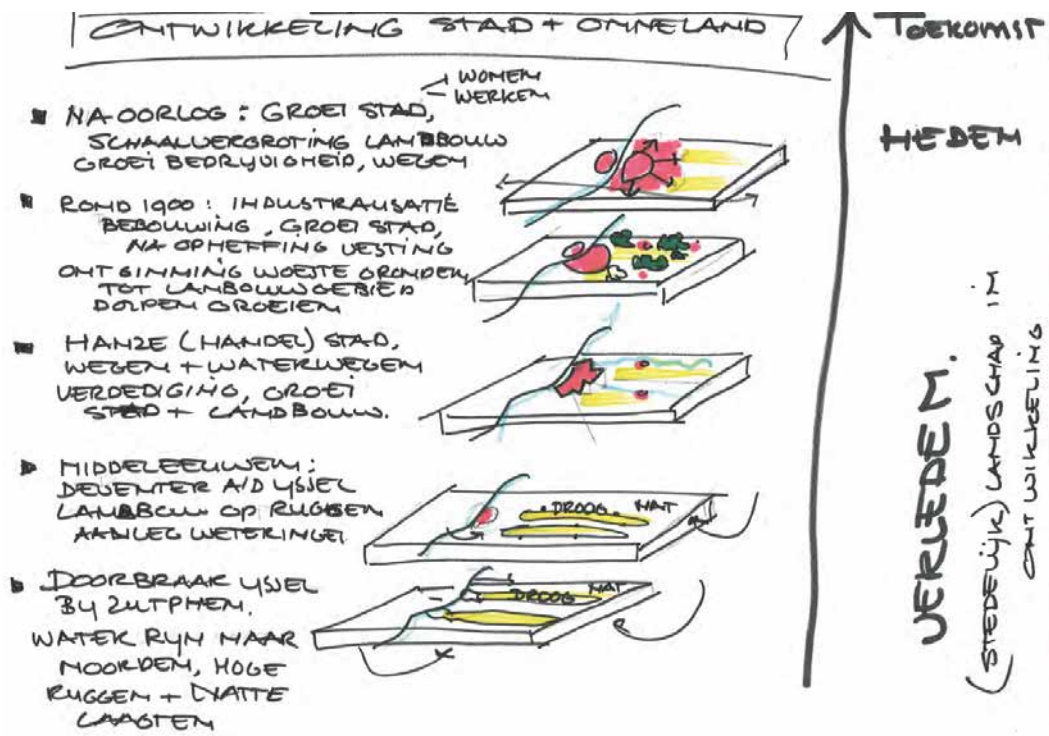 ONTWIKKELING STAD + OMMELAND
TOEKOMST
WONEN
WERKEN
NA-OORLOG: GROEI STAD,
SCHAALVERGROTING LANDBOUW
GROEI BEDRIJVIGHEID, WEGEN
HEDEN
ROND 1900: INDUSTRALISATIE
BEBOUWING, GROEI STAD,
NA OPHEFFING VESTING
ONTGINNING WOESTE GRONDEN
TOT LANBOUWGEBIED
DORPEN GROEIEN
HANZE (HANDEL) STAD,
WEGEN + WATERWEGEN
VERDEDIGING, GROEI
STAD + LANDBOUW.
MIDDELEEUWEN:
DEVENTER A/D IJSSEL
LANDBOUW OP RUGGEN
AANLEG WETERINGEN
DROOG NAT
DOORBRAAK IJSSEL
BIJ ZUTPHEN.
WATER RIJN NAAR
NOORDEN, HOGE
RUGGEN + NATTE
LAAGTEN
DROOG NAT
VERLEDEN.
(STEDELIJK) LANDSCHAP IN
ONTWIKKELING